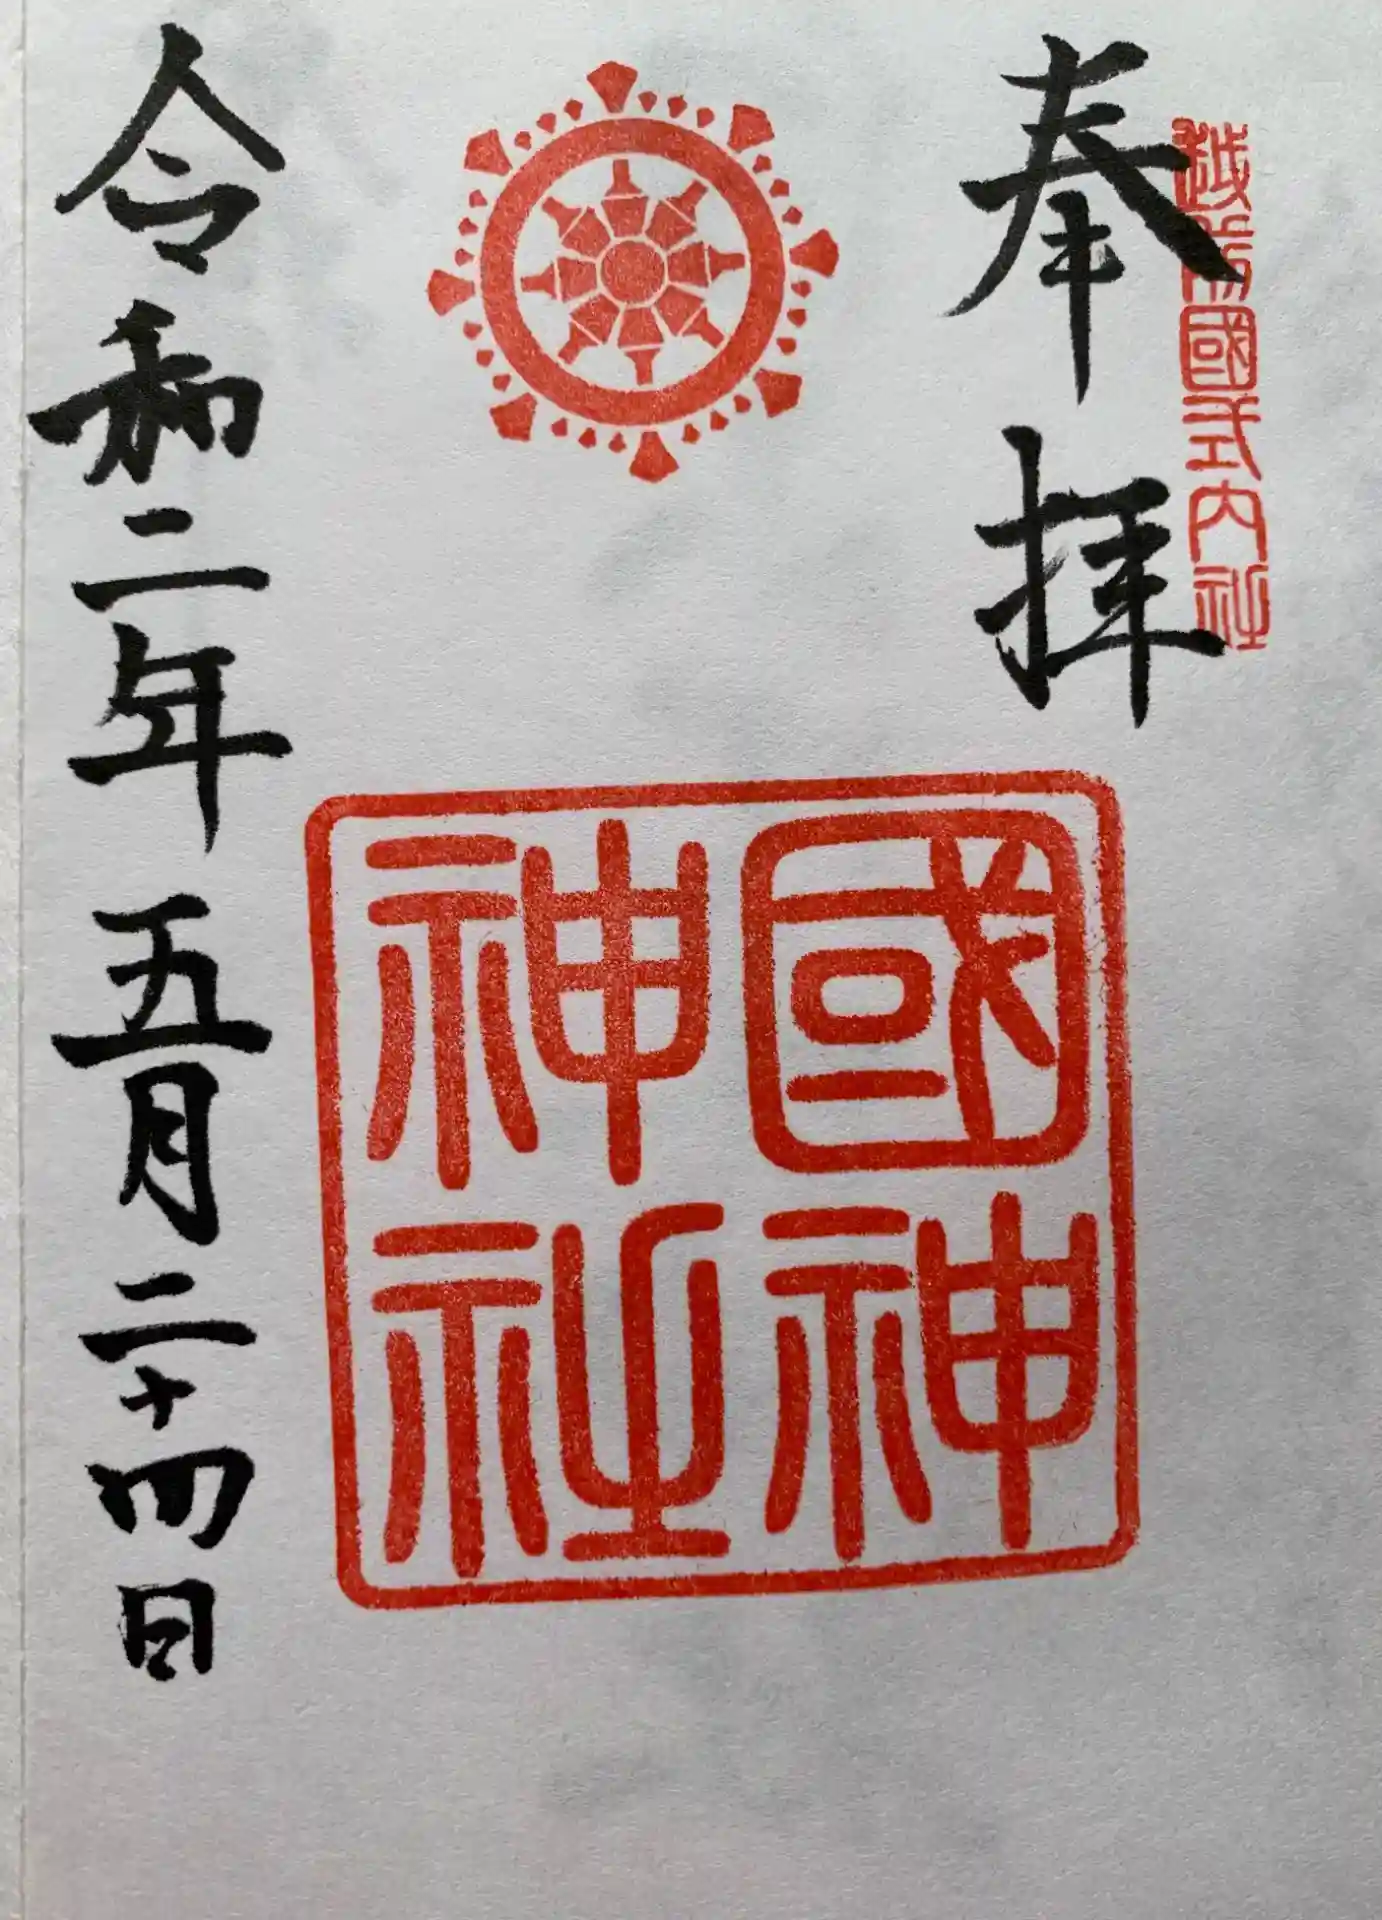 越前國式内社
奉拝
國神
神社
令和二年五月二十四日